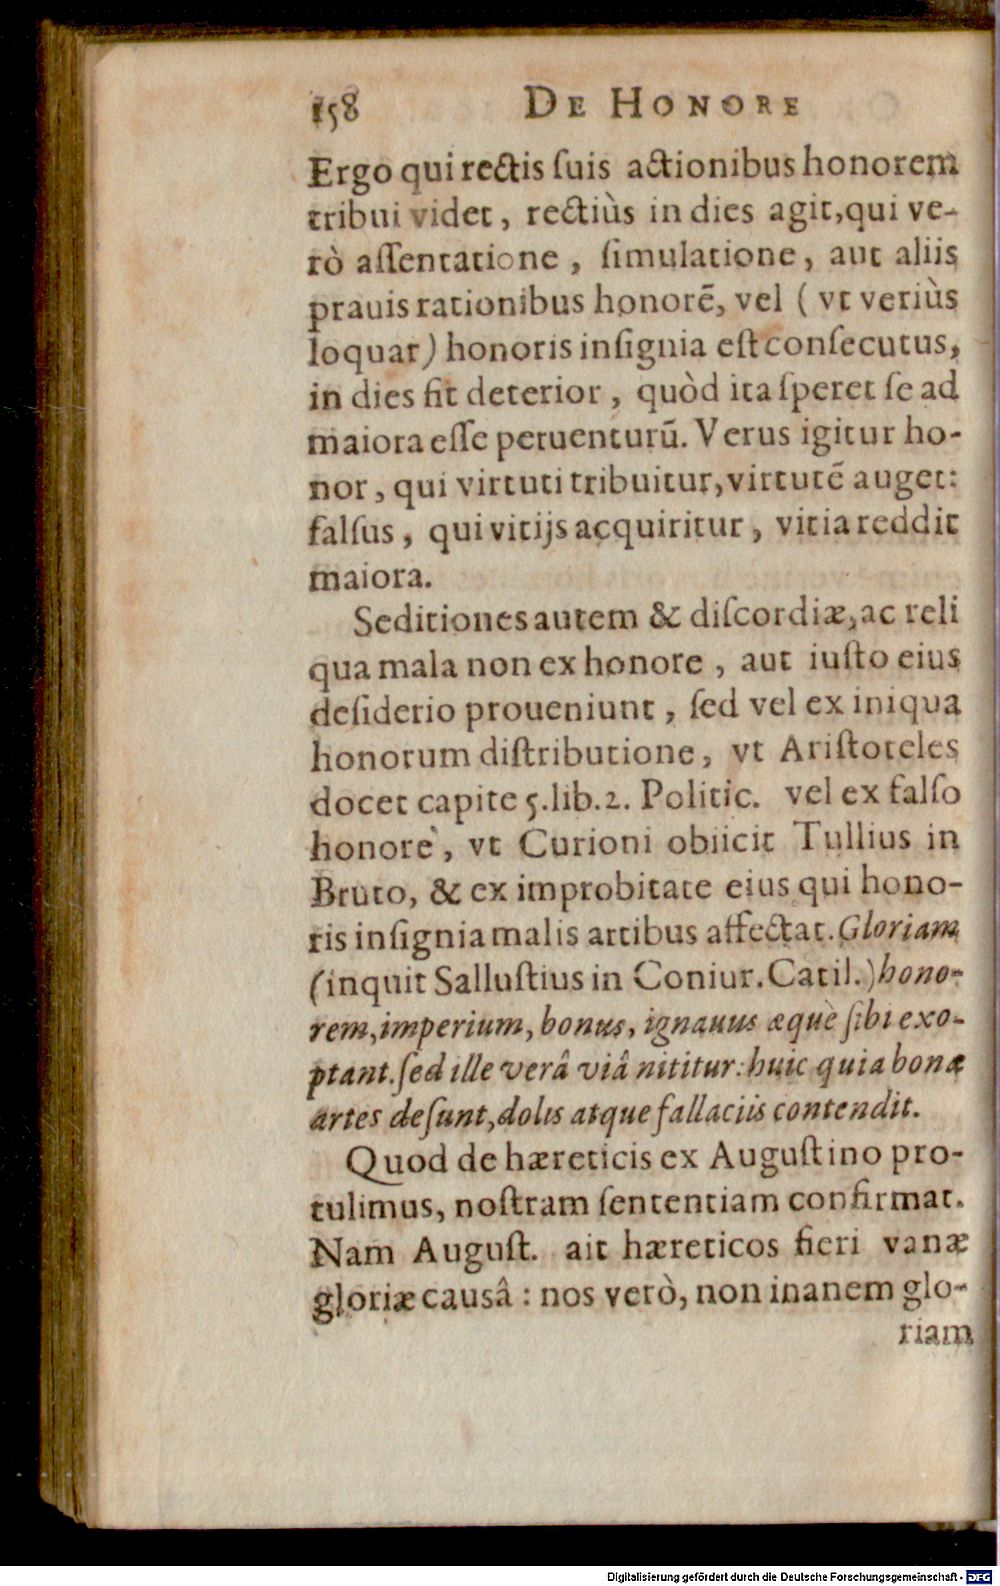 158 DE HONORE
Ergo qui rectis ſuis actionibus honorem
tribui videt, rectiùs in dies agit, qui ve-
rò aſſentatione, ſimulatione, aut aliis
prauis rationibus honorē, vel (vt veriùs
loquar) honoris inſignia eſt conſecutus,
in dies fit deterior, quòd ita ſperet ſe ad
maiora eſſe peruenturū. Verus igitur ho-
nor, qui virtuti tribuitur, virtutē auget:
falſus, qui vitijs acquiritur, vitia reddit
maiora.
Seditiones autem & diſcordiæ, ac reli
qua mala non ex honore, aut iuſto eius
deſiderio proueniunt, ſed vel ex iniqua
honorum diſtributione, vt Ariſtoteles
docet capite 5. lib. 2. Politic. vel ex falſo
honore, vt Curioni obiicit Tullius in
Bruto, & ex improbitate eius qui hono-
ris inſignia malis artibus affectat. Gloriam
(inquit Salluſtius in Coniur. Catil.) hono-
rem, imperium, bonus, ignauus æquè ſibi exo-
ptant. ſed ille verâ viâ nititur: huic quia bonæ
artes deſunt, dolis atque fallaciis contendit.
Quod de hæreticis ex Auguſtino pro-
tulimus, noſtram ſententiam confirmat.
Nam Auguſt. ait hæreticos fieri vanæ
gloriæ causâ: nos verò, non inanem glo-
riam
Digitalisierung gefördert durch die Deutsche Forschungsgemeinschaft - DFG